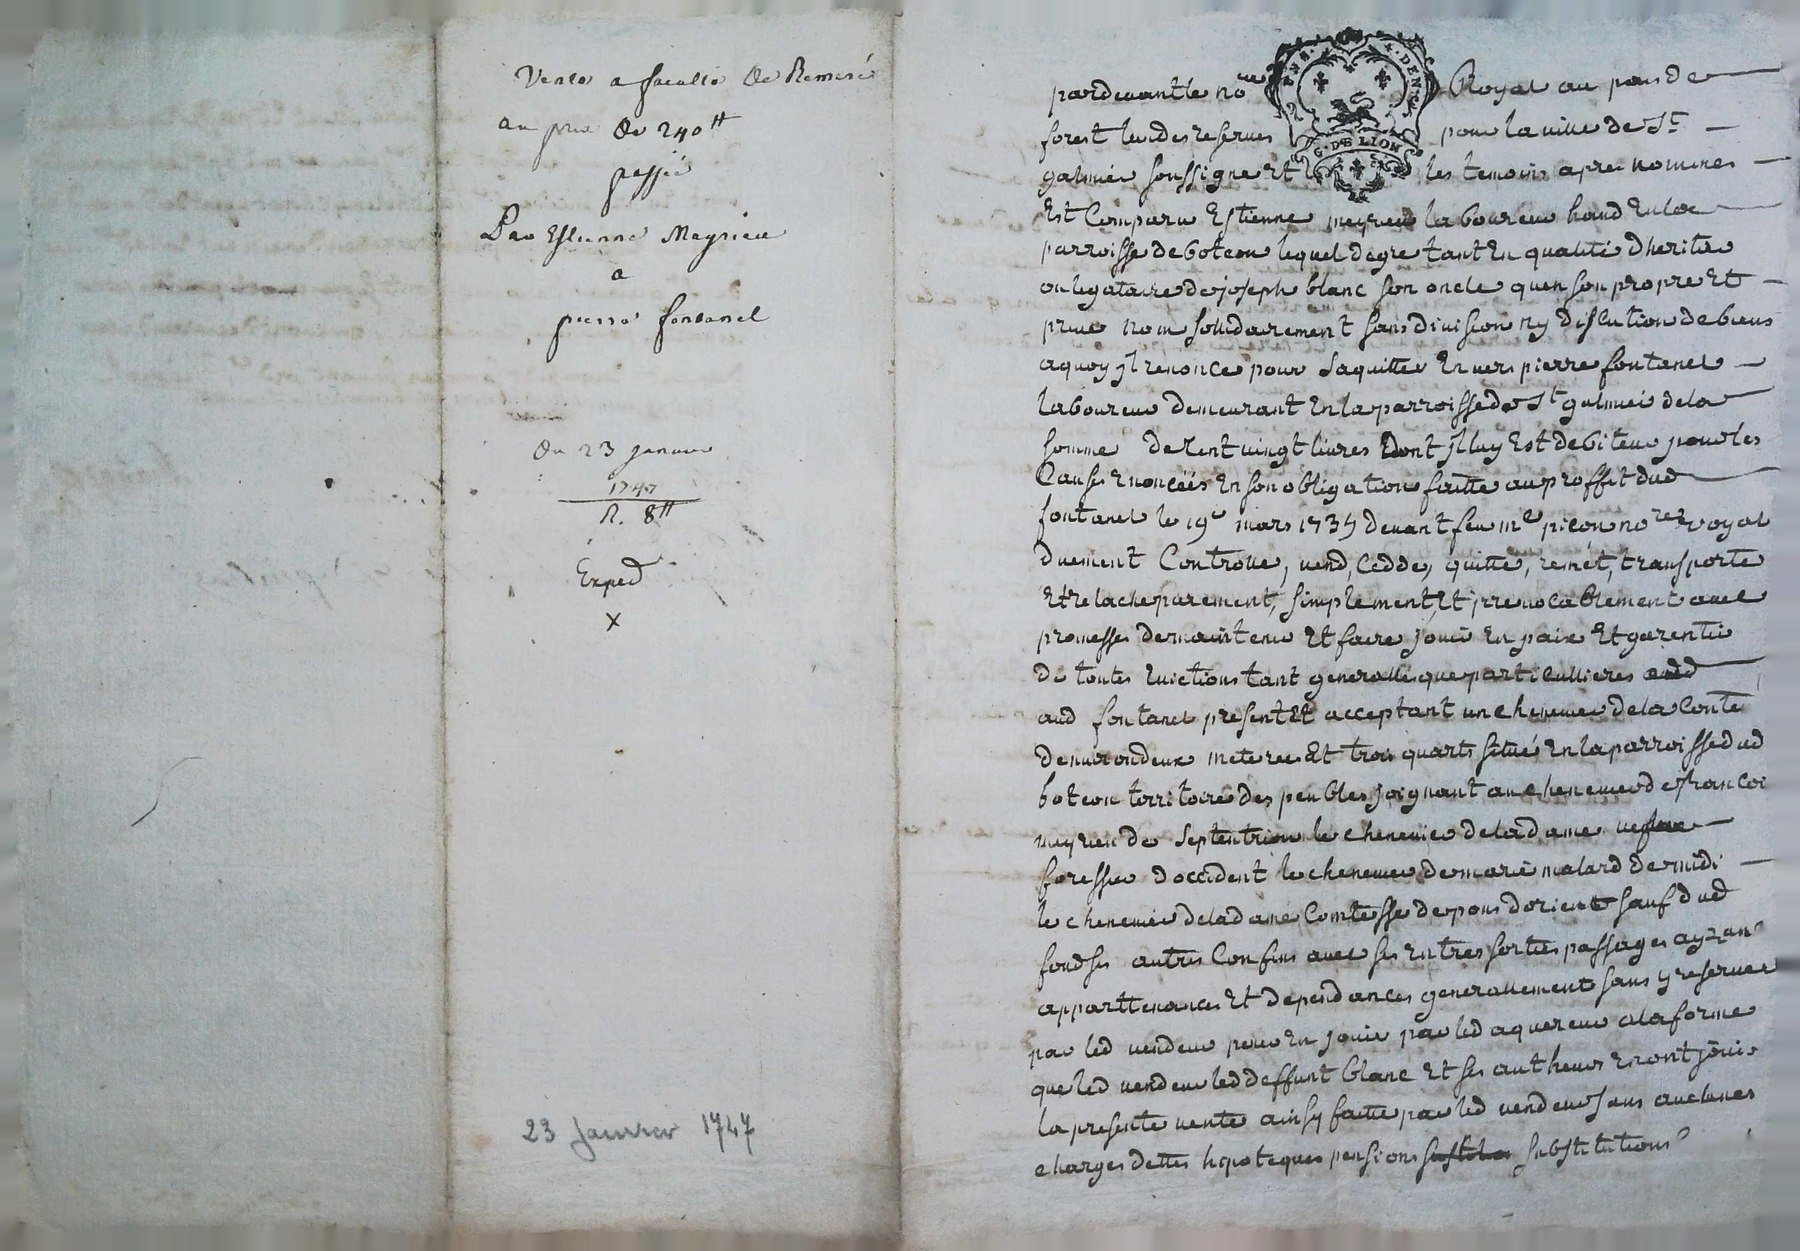 Vente a faculté De Remeré
au prix De 240ᵗᵗ
passé
Par Estienne Meyrieu
a
pierre fontanel
Du 23 janvier
1747
R. 8ᵗᵗ
Exped
x
23 Janvier 1747
GEN. DE LION
pardevant le noʳᵉ Royal au pais de
forest des reserves pour la ville de Sᵗ
galmier soussigné Et les temoins apres nommes
Est Comparu Estienne meyrieu laboureur
parroisse de boteon lequel de gre tant En qualité dheritier
ou legataire de joseph blanc son oncle quen son propre Et
prive nom solidairement sans division ny discution de biens
a quoy jl renonce pour saquitter Envers pierre fontanel
laboureur demeurant En la parroisse de Sᵗ galmier de la
somme de Cent vingt livres dont jl luy Est debiteur pour les
Causes Enoncéés En son obligation faitte au proffit dud
fontanel le 19ᵉ mars devant feu mᵉ picon noʳᵉ royal
duement Controlle, vend, Cedde, quitte, remet, transporte
Et relache purement, simplement, Et jrrevocablement avec
promesse de maintenir Et faire jouir En paix Et garentir
de toutes Evictions tant generalles que particullieres
aud fontanel present Et acceptant un chenevier de la Conte
denviron deux meterees Et trois quarts situé En la parroisse dud
boteon territoire des peubles joignant au chenevier de francoi
meyrieu de septentrion le chenevier de la dame
foressier doccident le chenevier de marie malard de midi
le chenevier de la dame Comtesse de pons dorient sauf dud
fond ses autres Confins avec ses Entrees sorties passages ayzan
apparttenances Et dependances generallement sans y reserver
par led vendeur pour En jouir par led aquereur a la forme
que led vendeur led deffunt blanc Et ses autheurs En ont joui
la presente vente ainsy faitte par led vendeur sans aucunes
charges dettes hipoteques pensions substitutions